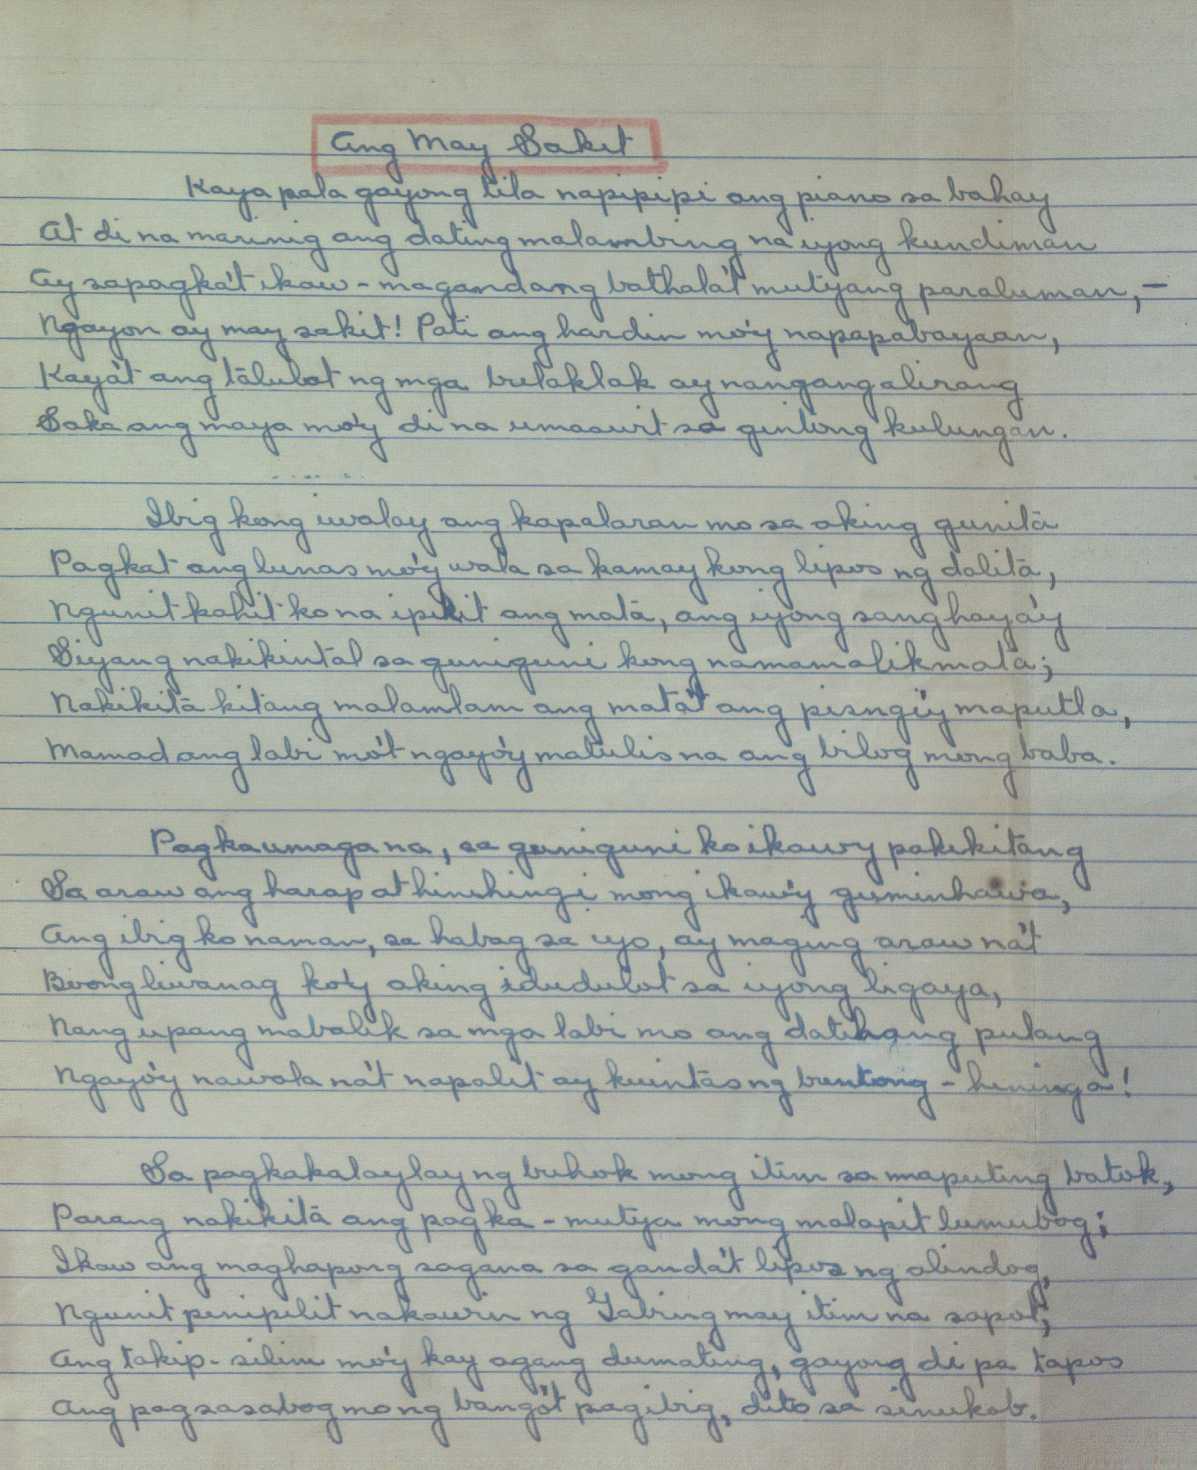 Ang May Sakit
Kaya pala gayong tila napipipi ang piano sa bahay
At di na marinig ang dating malambing na iyong kundiman
Ay sapagka't ikaw - magandang bathala't mutyang paraluman, -
Ngayon ay may sakit! Pati ang hardin mo'y napapabayaan,
Kaya't ang tālulot ng mga bulaklak ay nangangalirang
Saka ang maya mo'y di na umaawit sa gintong kulungan.
. . . . .
Ibig kong iwalay ang kapalaran mo sa aking gunitā
Pagkat ang lunas mo'y wala sa kamay kong lipos ng dalitā,
Ngunit kahit ko na ipikit ang matā, ang iyong sanghaya'y
Siyang nakikintal sa guniguni kong namamalikmatā;
Nakikitā kitang malamlam ang mata't ang pisngi'y maputla,
Mamad ang labi mo't ngayo'y matulis na ang bilog mong baba.
Pagkaumaga na, sa guniguni ko ikaw'y pakikitang
Sa araw ang harap at hinihingi mong ikaw'y guminhawa,
Ang ibig ko naman, sa habag sa iyo, ay maging araw na't
Boong liwanag ko'y aking idudulot sa iyong ligaya,
Nang upang mabalik sa mga labi mo ang datihang pulang
Ngayo'y nawala na't napalit ay kuintas ng buntong - hininga!
Sa pagkakalaylay ng buhok mong itim sa maputing batok,
Parang nakikitā ang pagka - mutya mong malapit lumubog;
Ikaw ang maghapong sagana sa ganda't lipos ng alindog,
Ngunit pinipilit nakawin ng Gabing may itim na sapot;
Ang takip - silim mo'y kay agang dumating, gayong di pa tapos
Ang pagsasabog mo ng bango't pagibig, dito sa sinukob.